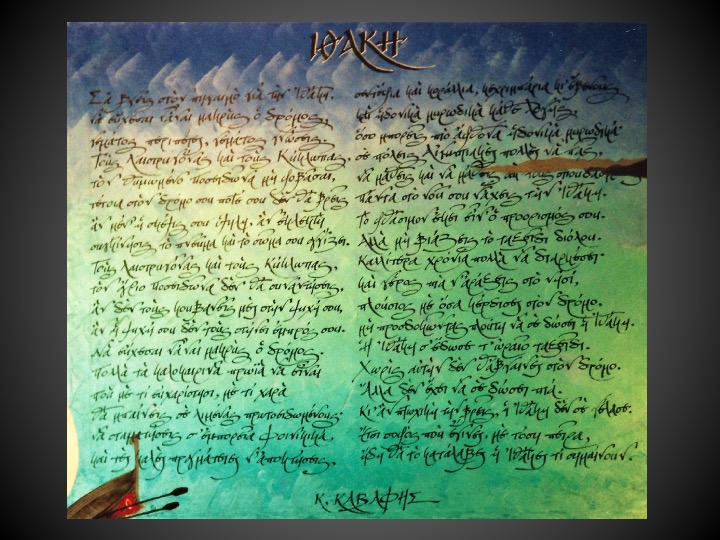 ΙΘΑΚΗ
Σὰ βγεῖς στὸν πηγαιμὸ γιὰ τὴν Ἰθάκη.
νὰ εὔχεσαι νἆναι μακρὺς ὁ δρόμος,
γεμάτος περιπέτειες, γεμάτος γνώσεις.
Τοὺς Λαιστρυγόνας καὶ τοὺς Κύκλωπας,
τὸν θυμωμένο Ποσειδῶνα μὴ φοβᾶσαι,
τέτοια στὸν δρόμο σου ποτέ σου δὲν θὰ βρεῖς
ἂν μέν' ἡ σκέψις σου ὑψηλή, ἂν ἐκλεκτὴ
συγκίνησις τὸ πνεῦμα καὶ τὸ σῶμα σου ἀγγίζει.
Τοὺς Λαιστρυγόνας καὶ τοὺς Κύκλωπας,
τὸν ἄγριο Ποσειδῶνα δὲν θὰ συναντήσεις,
ἂν δὲν τοὺς κουβανεῖς μὲς στὴν ψυχή σου,
ἂν ἡ ψυχή σου δὲν τοὺς στήνει ἐμπρός σου.
Νὰ εὔχεσαι νἆναι μακρὺς ὁ δρόμος.
Πολλὰ τὰ καλοκαιρινὰ πρωϊὰ νὰ εἶναι
ποὺ μὲ τί εὐχαρίστησι, μὲ τί χαρὰ
θὰ μπαίνεις σὲ λιμένας πρωτοειδωμένους·
νὰ σταματήσεις σ' ἐμπορεῖα Φοινικικά,
καὶ τὲς καλὲς πραγμάτειες ν' ἀποκτήσεις,
σεντέφια καὶ κοράλλια, κεχριμπάρια κι' ἔβενους
καὶ ἡδονικὰ μυρωδικὰ κάθε λογῆς,
ὅσο μπορεῖς πιὸ ἄφθονα ἡδονικὰ μυρωδικά·
σὲ πόλεις Αἰγυπτιακὲς πολλὲς νὰ πᾶς,
νὰ μάθεις καὶ νὰ μάθεις ἀπ' τοὺς σπουδασμένους.
Πάντα στὸ νοῦ σου νἄχεις τὴν Ἰθάκη.
Τὸ φθάσιμον ἐκεῖ εἶν' ὁ προορισμός σου.
Ἀλλὰ μὴ βιάζεις τὸ ταξεῖδι διόλου.
Καλλίτερα χρόνια πολλὰ νὰ διαρκέσει·
καὶ γέρος πιὰ ν' ἀράξεις στὸ νησί,
πλούσιος μὲ ὅσα κέρδισες στὸν δρόμο.
μὴ προσδοκώντας πλούτη νὰ σὲ δώσει ἡ Ἰθάκη.
Ἡ Ἰθάκη σ' ἔδωσε τ' ὡραῖο ταξεῖδι.
Χωρὶς αὐτὴν δὲν θἄβγαινες στὸν δρόμο.
Ἄλλα δὲν ἔχει νὰ σὲ δώσει πιά.
Κι' ἂν πτωχικὴ τὴν βρεῖς, ἡ Ἰθάκη δὲν σὲ γέλασε.
Ἔτσι σοφὸς ποὺ ἔγινες, μὲ τόση πεῖρα,
ἤδη θὰ τὸ κατάλαβες ἡ Ἰθάκες τί σημαίνουν.
Κ. ΚΑΒΑΦΗΣ